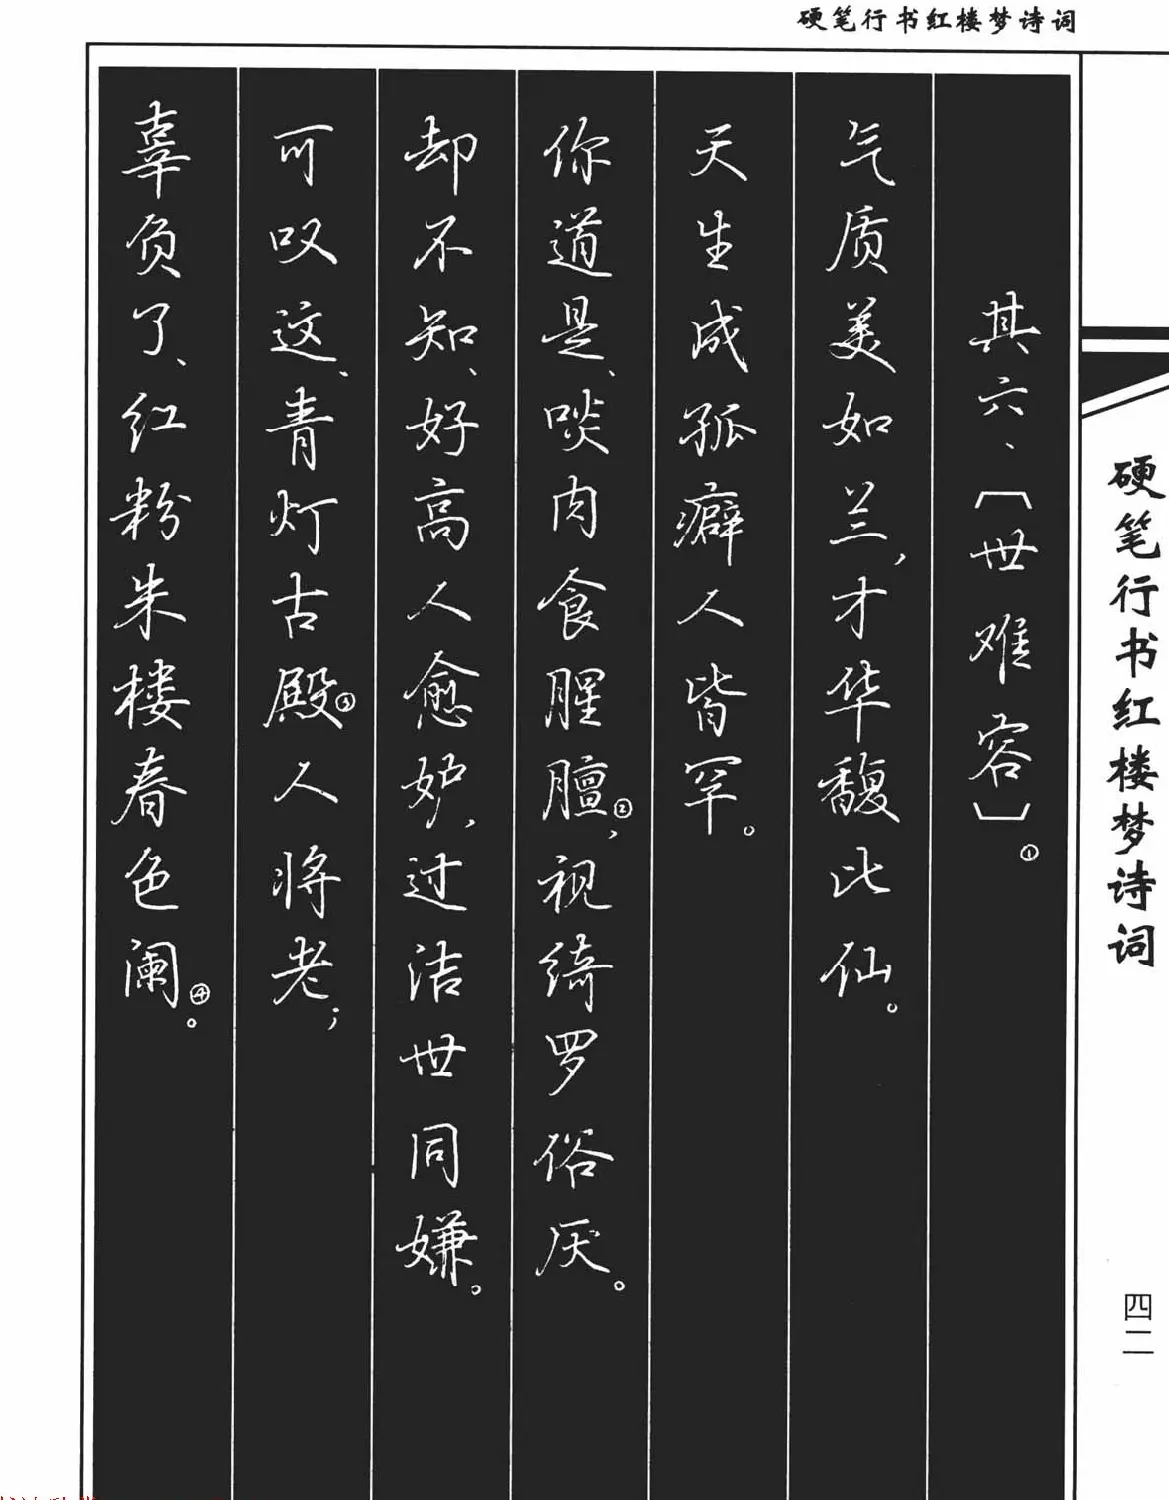 硬笔行书红楼梦诗词
其六、〔世难容〕①
气质美如兰，才华馥比仙。
天生成孤癖人皆罕。
你道是、啖肉食腥膻②，视绮罗俗厌。
却不知、好高人愈妒，过洁世同嫌。
可叹这、青灯古殿③人将老；
辜负了、红粉朱楼春色阑④。
硬笔行书红楼梦诗词
四二